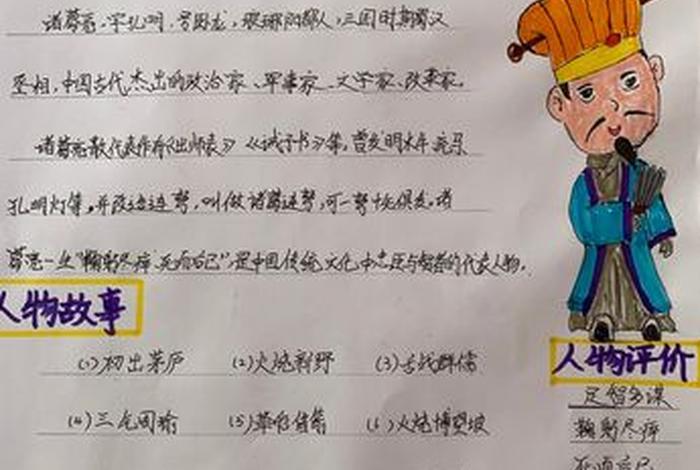 诸葛亮，字孔明，号卧龙，琅琊阳都人，三国时期蜀汉
丞相，中国古代杰出的政治家、军事家、文学家、改革家。
诸葛亮散代表作有《出师表》《诫子书》等，曾发明木牛流马
孔明灯等，并改造连弩，叫做诸葛连弩，可一弩十矢俱发，诸
葛亮一生"鞠躬尽瘁 死而后已"，是中国传统文化中忠臣与智者的代表人物。
人物故事
(1)初出茅庐 (2)火烧新野 (3)舌战群儒
(4)三气周瑜 (5)草船借箭 (6)火烧博望坡
人物评价
足智多谋
鞠躬尽瘁
死而后已